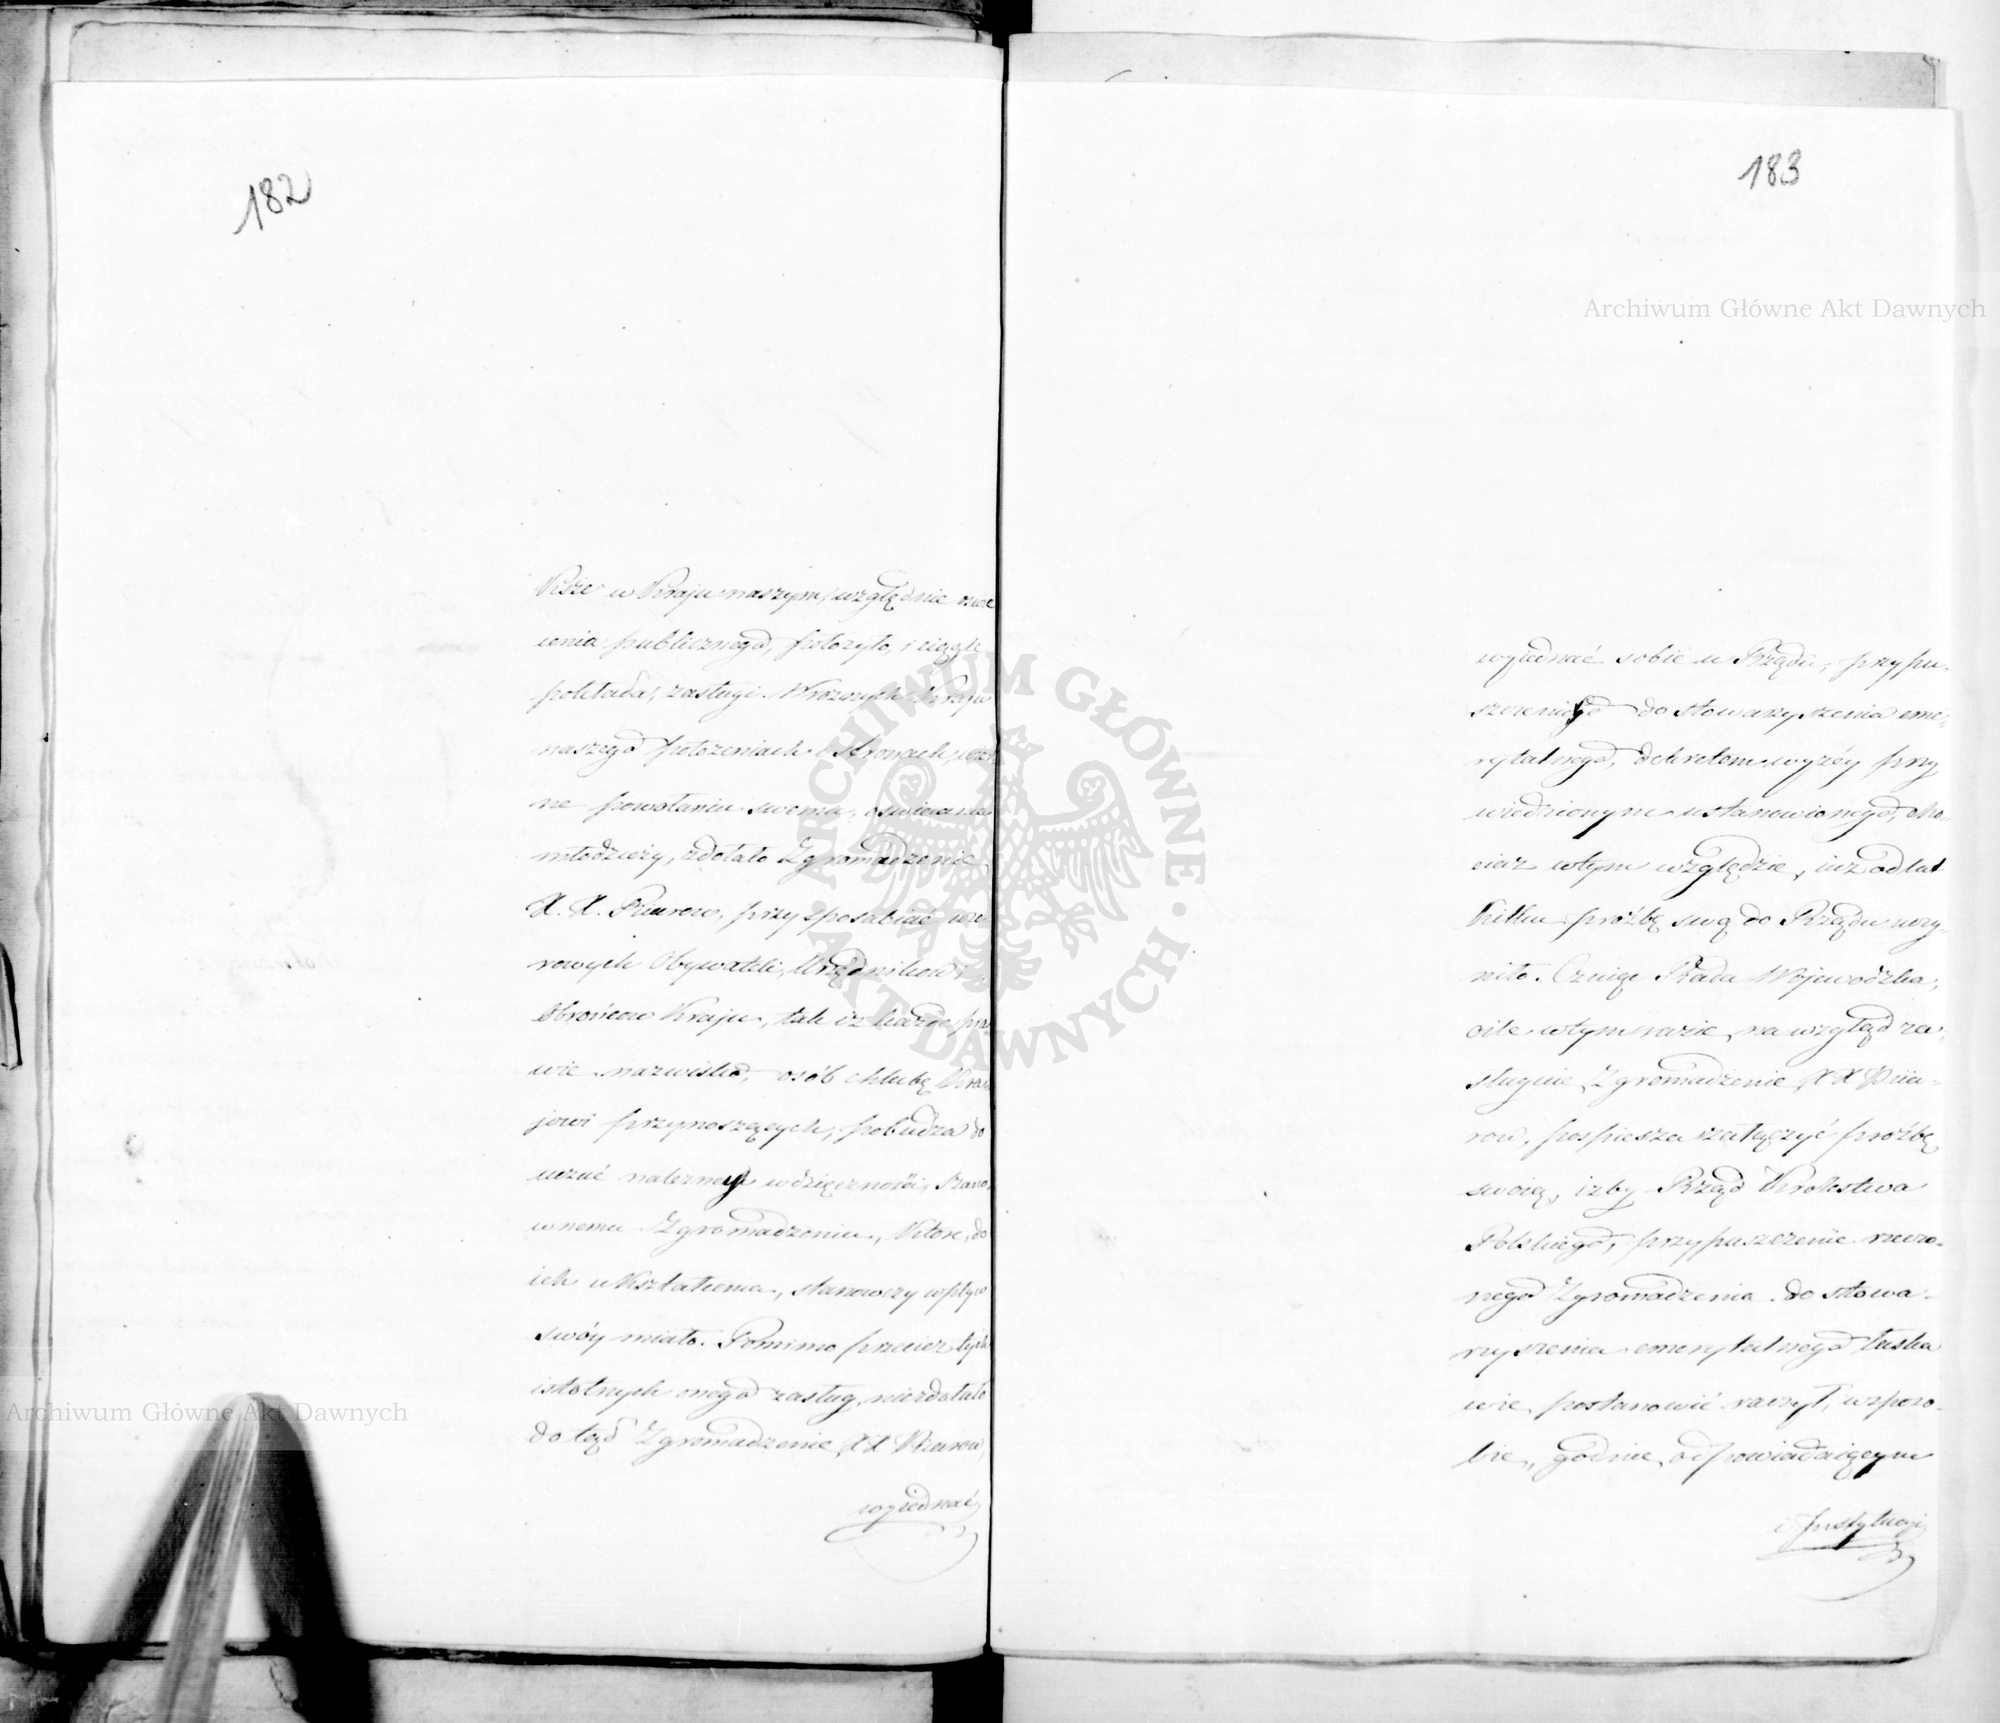 182
Kże w Kraju naszym, względnie oświe
cenia publicznego, położyło, i ciągle
pokłada, zasługi. W rozmych Kraju
naszego położeniach i stronach, wier
ne powołaniu swemu, oświecania
młodzieży, zdołało Zgromadzenie
X. X. Piiarow, przysposabiać wzo
rowych Obywateli, Urzędników i
Obrońcow Kraju, tak iż każde pra
wie nazwisko, osób chlubę Kra
jowi przynoszących, pobudza do
uczuć należney wdzięczności, szano
wnemu Zgromadzeniu, Które, do
ich ukształcenia, stanowczy wpływ
swóy miało. Pomimo przecież tych
istotnych onego zasług, niezdołało
dotąd Zgromadzenie XX Piiarow,
wyiednać
183
wyiednać sobie u Rządu, przypu-
szczenie do stowarzyszenia eme-
rytalnego, dekretem wyżéy przy
wiedzionym ustanowionego, cho-
ciaż wtym względzie, iuż od lat
kilku prośbę swą do Rządu uczy-
niło. Czuiąc Rada Woiewódzka,
oile wtym razie, na wzgląd za-
sługuie, Zgromadzenie XX Piia-
row, pospiesza załączyć prośbę
swoią, iżby Rząd Krolestwa
Polskiego, przypuszczenie rzeczo-
nego Zgromadzenia do stowa-
rzyszenia emerytalnego łaska
wie, postanowić raczył, w sposo-
bie, godnie odpowiadaiącym
i Instytucyi
Archiwum Główne Akt Dawnych
Archiwum Główne Akt Dawnych
ARCHIWUM GŁÓWNE · AKT DAWNYCH ·